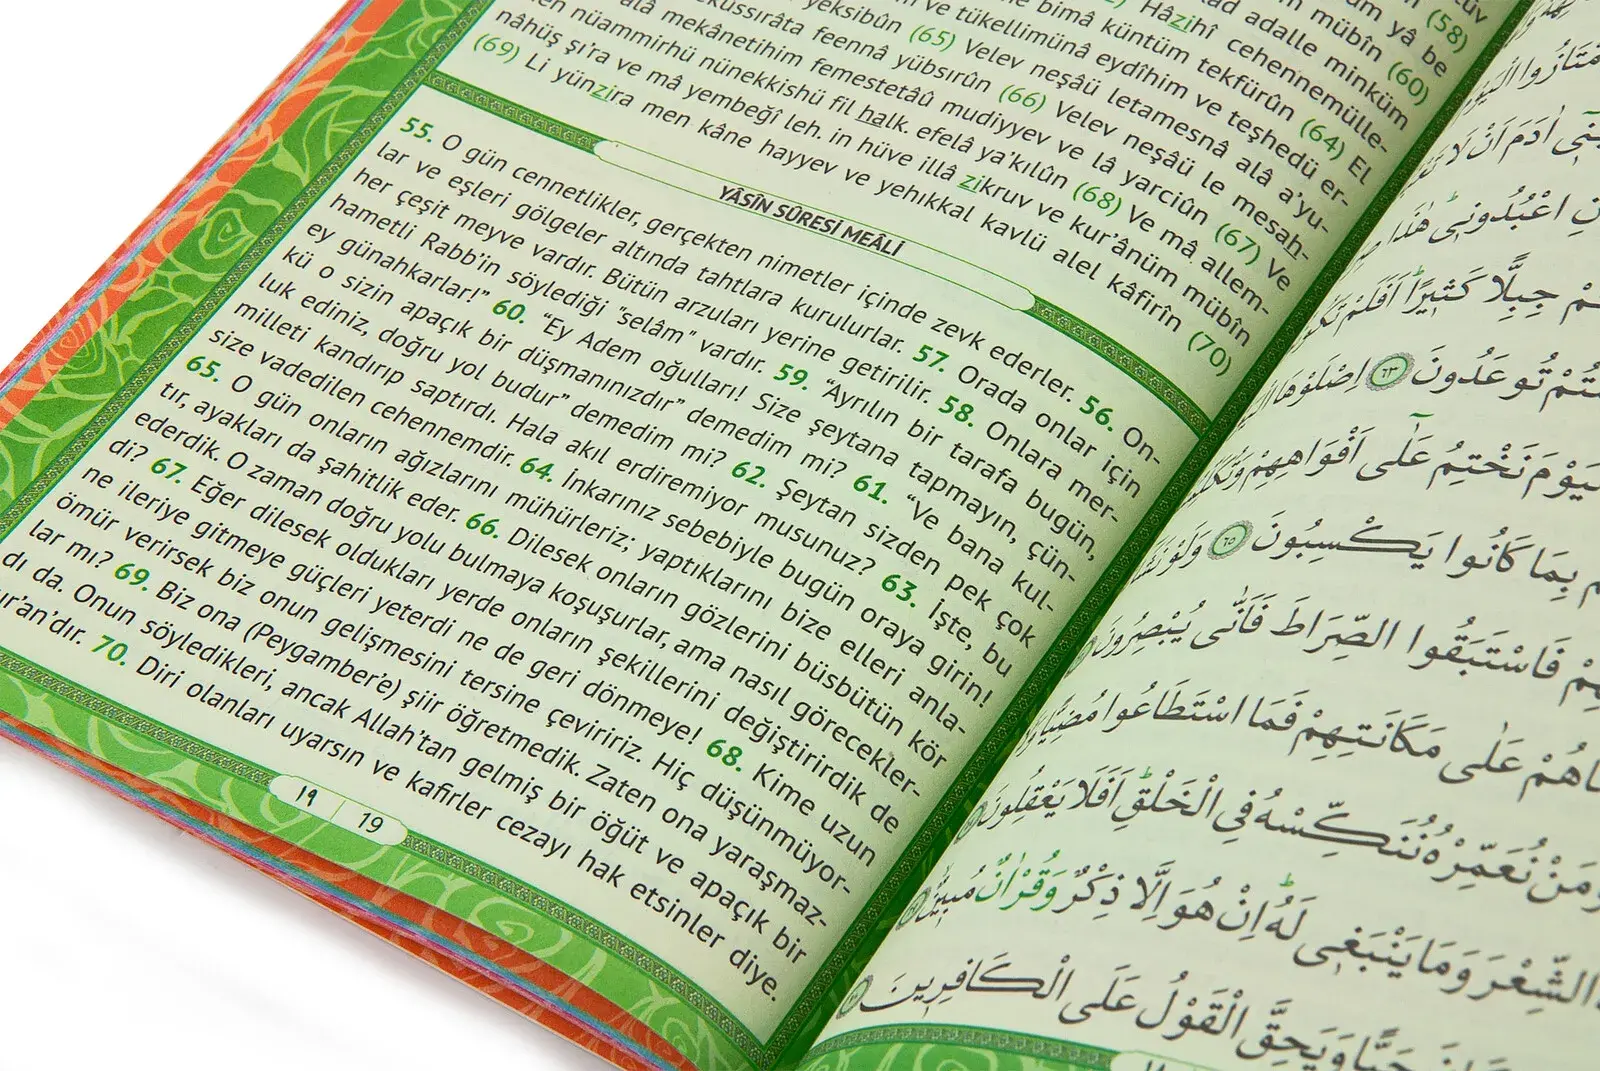 tüv
(58)
yâ be
mübîn (60)
kad adalle minküm
Hâzihî cehennemülle-
bimâ küntüm tekfürûn (64) El
ve tükellimünâ eydîhim ve teşhedü er-
yeksibûn (65) Velev neşâü letamesnâ alâ a'yu-
feennâ yübsırûn (66) Velev neşâü le mesah-
alâ mekânetihim femestetâû mudiyyev ve lâ yarciûn (67) Ve
nüammirhü nünekkishü fil halk. efelâ ya'kılûn (68) Ve mâ allem-
nâhüş şı'ra ve mâ yembeğî leh. in hüve illâ zikruv ve kur'ânüm mübîn
(69) Li yünzira men kâne hayyev ve yehıkkal kavlü alel kâfirîn (70)
YÂSÎN SÛRESİ MEÂLİ
55. O gün cennetlikler, gerçekten nimetler içinde zevk ederler. 56. On-
lar ve eşleri gölgeler altında tahtlara kurulurlar. 57. Orada onlar için
her çeşit meyve vardır. Bütün arzuları yerine getirilir. 58. Onlara mer-
hametli Rabb'in söylediği "selâm" vardır. 59. "Ayrılın bir tarafa bugün,
ey günahkarlar!" 60. "Ey Adem oğulları! Size şeytana tapmayın, çün-
kü o sizin apaçık bir düşmanınızdır" demedim mi? 61. "Ve bana kul-
luk ediniz, doğru yol budur" demedim mi? 62. Şeytan sizden pek çok
milleti kandırıp saptırdı. Hala akıl erdiremiyor musunuz? 63. İşte, bu
size vadedilen cehennemdir. 64. İnkarınız sebebiyle bugün oraya girin!
65. O gün onların ağızlarını mühürleriz; yaptıklarını bize elleri anla-
tır, ayakları da şahitlik eder. 66. Dilesek onların gözlerini büsbütün kör
ederdik. O zaman doğru yolu bulmaya koşuşurlar, ama nasıl görecekler-
di? 67. Eğer dilesek oldukları yerde onların şekillerini değiştirirdik de
ne ileriye gitmeye güçleri yeterdi ne de geri dönmeye! 68. Kime uzun
ömür verirsek biz onun gelişmesini tersine çeviririz. Hiç düşünmüyor-
lar mı? 69. Biz ona (Peygambere) şiir öğretmedik. Zaten ona yaraşmaz-
dı da. Onun söyledikleri, ancak Allah'tan gelmiş bir öğüt ve apaçık bir
ur'an'dır. 70. Diri olanları uyarsın ve kafirler cezayı hak etsinler diye.
١٩ 19
اٰدَمَ اَنْ لَا
اعْبُدُونٖي هٰذَا
جِبِلًّا كَثٖيرًا اَفَلَمْ
تُوعَدُونَ ٦٣ اِصْلَوْهَا
نَخْتِمُ عَلٰٓى اَفْوَاهِهِمْ
بِمَا كَانُوا يَكْسِبُونَ ٦٥ وَلَوْ
فَاسْتَبَقُوا الصِّرَاطَ فَاَنّٰى يُبْصِرُونَ
عَلٰى مَكَانَتِهِمْ فَمَا اسْتَطَاعُوا
وَمَنْ نُعَمِّرْهُ نُنَكِّسْهُ فِي الْخَلْقِ اَفَلَا يَعْقِلُونَ
الشِّعْرَ وَمَا يَنْبَغٖي لَهُ اِنْ هُوَ اِلَّا ذِكْرٌ وَقُرْاٰنٌ مُبٖينٌ
حَيًّا وَيَحِقَّ الْقَوْلُ عَلَى الْكَافِرٖينَ